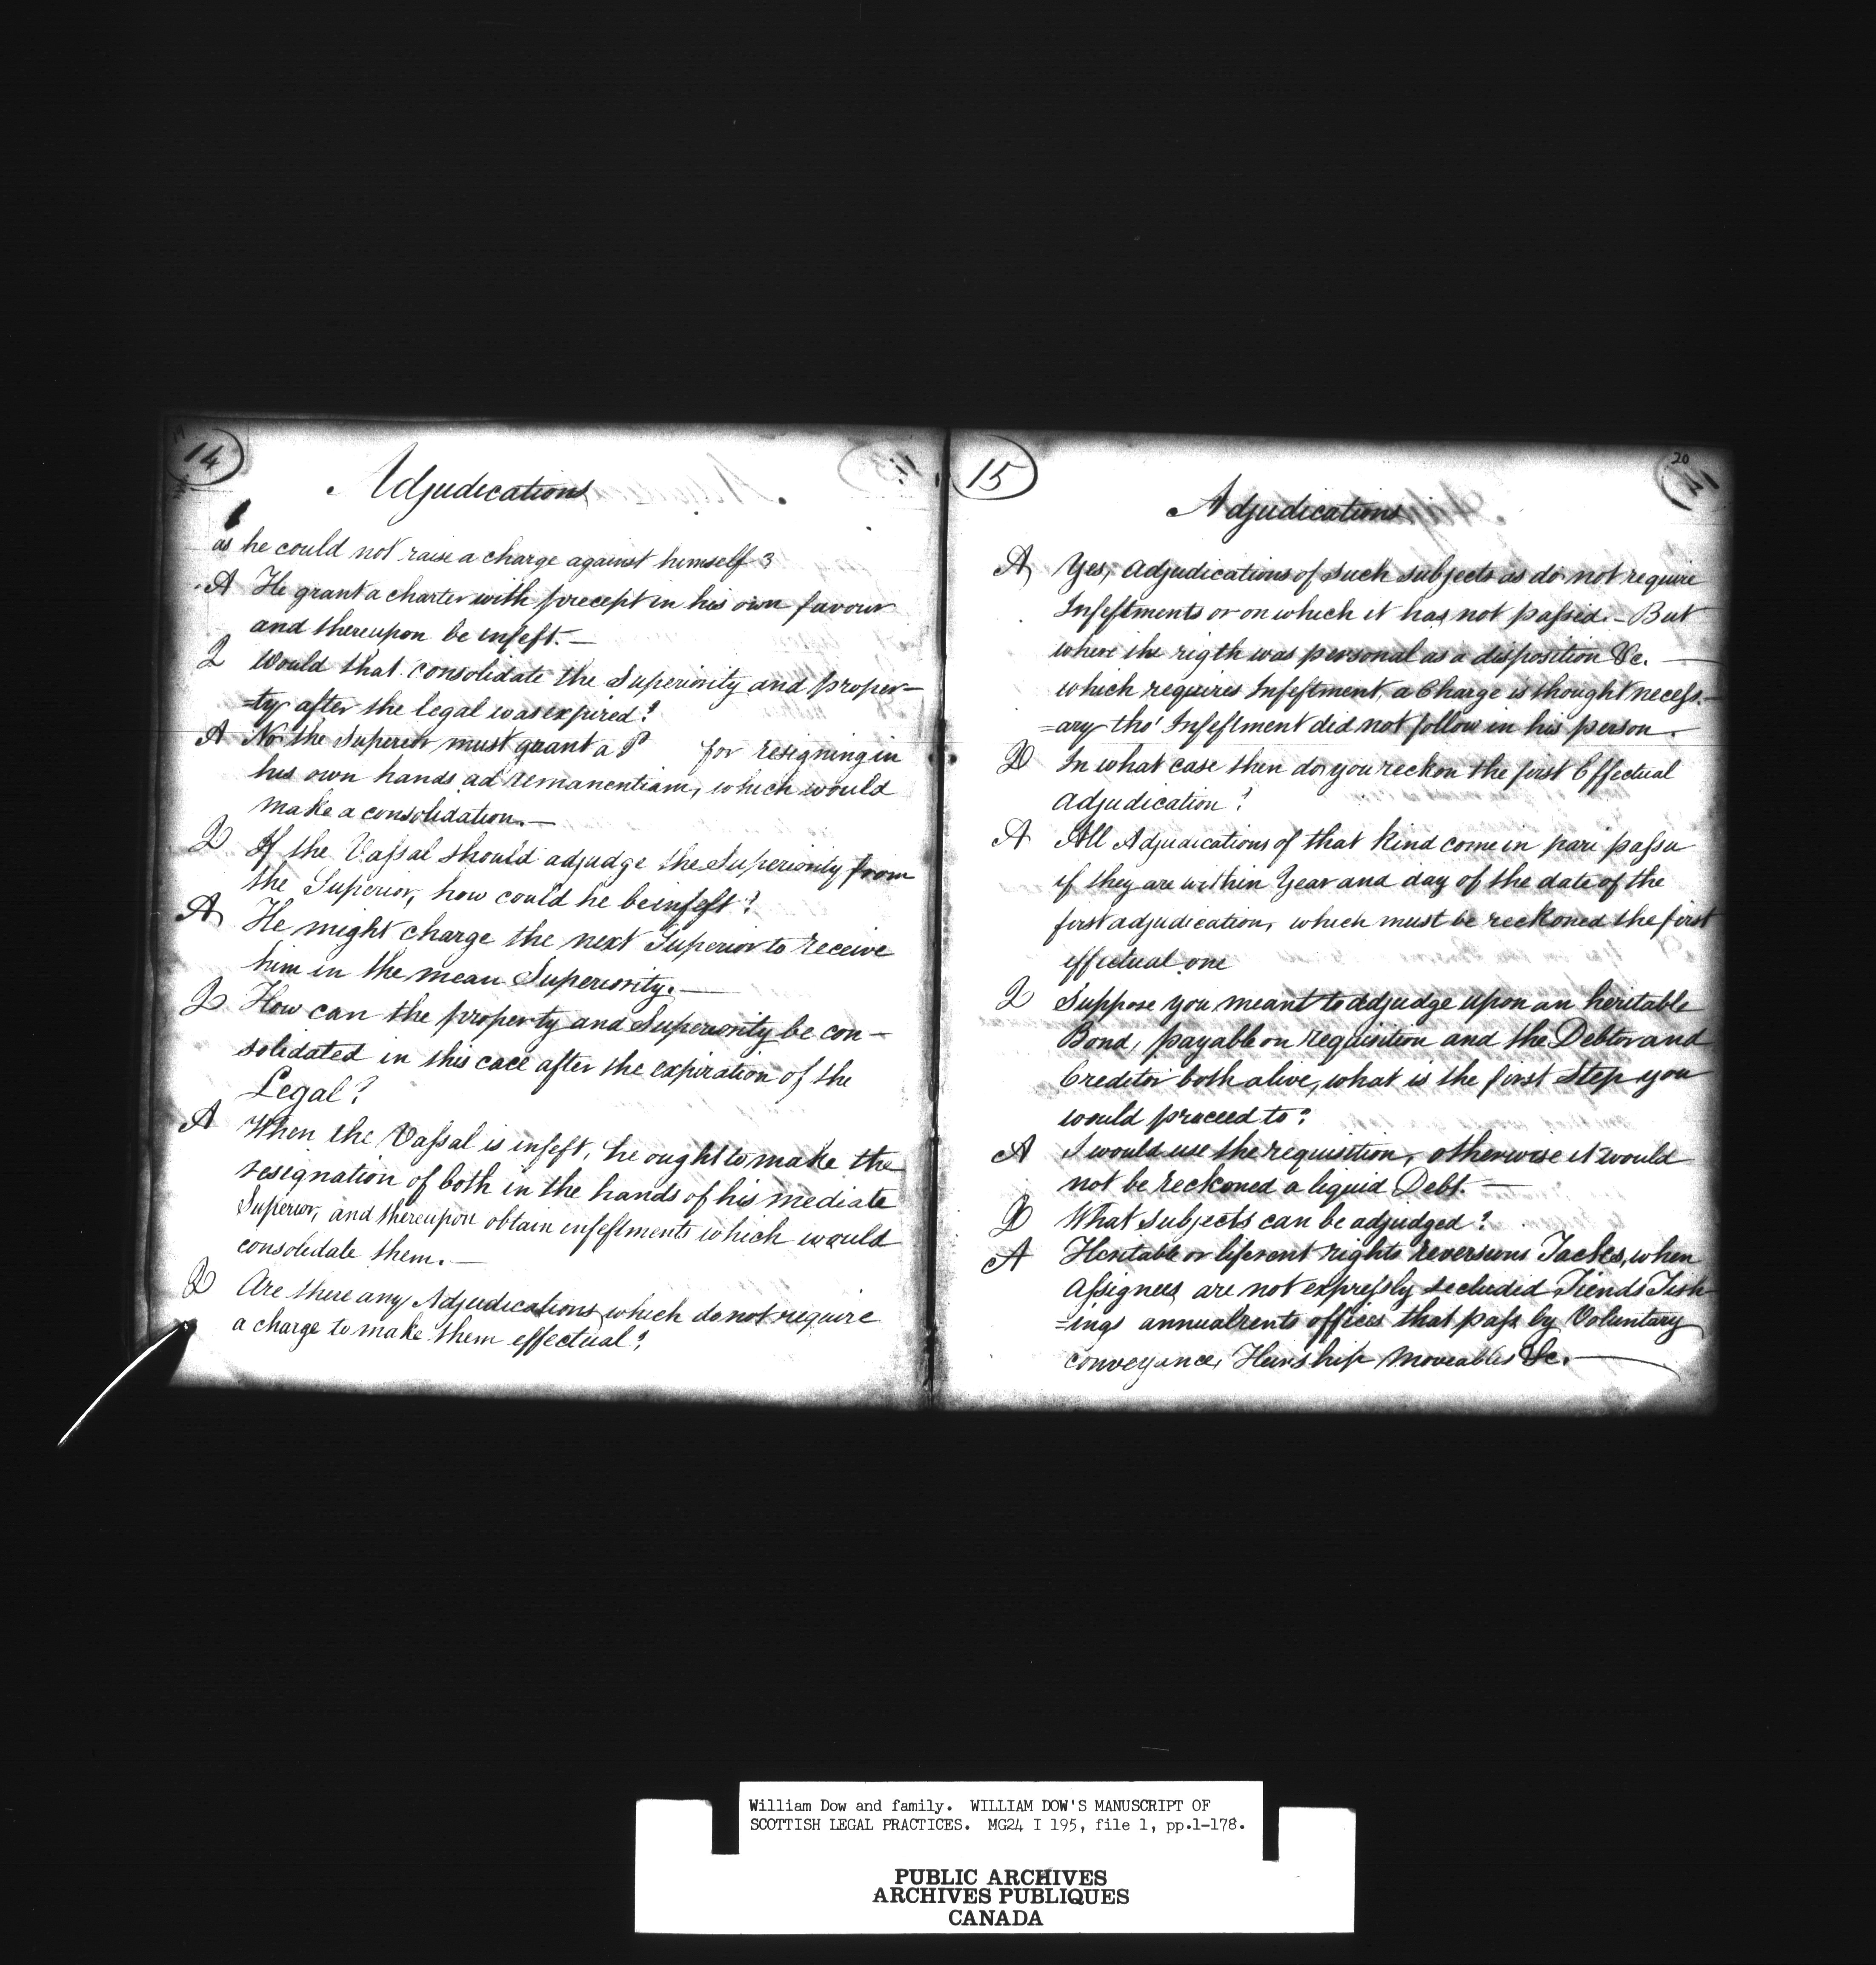 14
Adjudications
as he could not raise a charge against himself?
A He grant a charter with precept in his own favour
and thereupon be infeft.—
Q Would that consolidate the Superiority and proper-
=ty after the legal was expired?
A No the Superior must grant a P for resigning in
his own hands ad remanentiam, which would
make a consolidation.—
Q If the Vassal should adjudge the Superiority from
the Superior, how could he be infeft?
A He might charge the next Superior to receive
him in the mean Superiority.—
Q How can the property and Superiority be con-
solidated in this cace after the expiration of the
Legal?
A When the Vassal is infeft, he ought to make the
resignation of both in the hands of his mediate
Superior, and thereupon obtain infeftments which would
consolidate them.—
Q Are there any Adjudications which do not require
a charge to make them effectual?
15
20
Adjudications
A Yes, Adjudications of such subjects as do not require
Infeftments or on which it has not passed.— But
where the rigth was personal as a disposition &c.—
which requires Infeftment, a Charge is thought necess-
=ary tho' Infeftment did not follow in his person.
Q In what case then do you reckon the first Effectual
adjudication?
A All Adjudications of that kind come in pari passu
if they are within Year and day of the date of the
first adjudication, which must be reckoned the first
effectual one
Q Suppose you meant to adjudge upon an heritable
Bond, payable on requisition and the Debtor and
Creditor both alive, what is the first Step you
would proceed to?
A I would use the requisition, otherwise it would
not be reckoned a liquid Debt.—
Q What subjects can be adjudged?
A Heritable or liferent rights reversions Tackes, when
Assignees are not expressly secluded Tiends Fish-
=ings annualrents offices that pass by Voluntary
conveyance, Heirship moveables &c.—
William Dow and family. WILLIAM DOW'S MANUSCRIPT OF
SCOTTISH LEGAL PRACTICES. MG24 I 195, file 1, pp.1-178.
PUBLIC ARCHIVES
ARCHIVES PUBLIQUES
CANADA